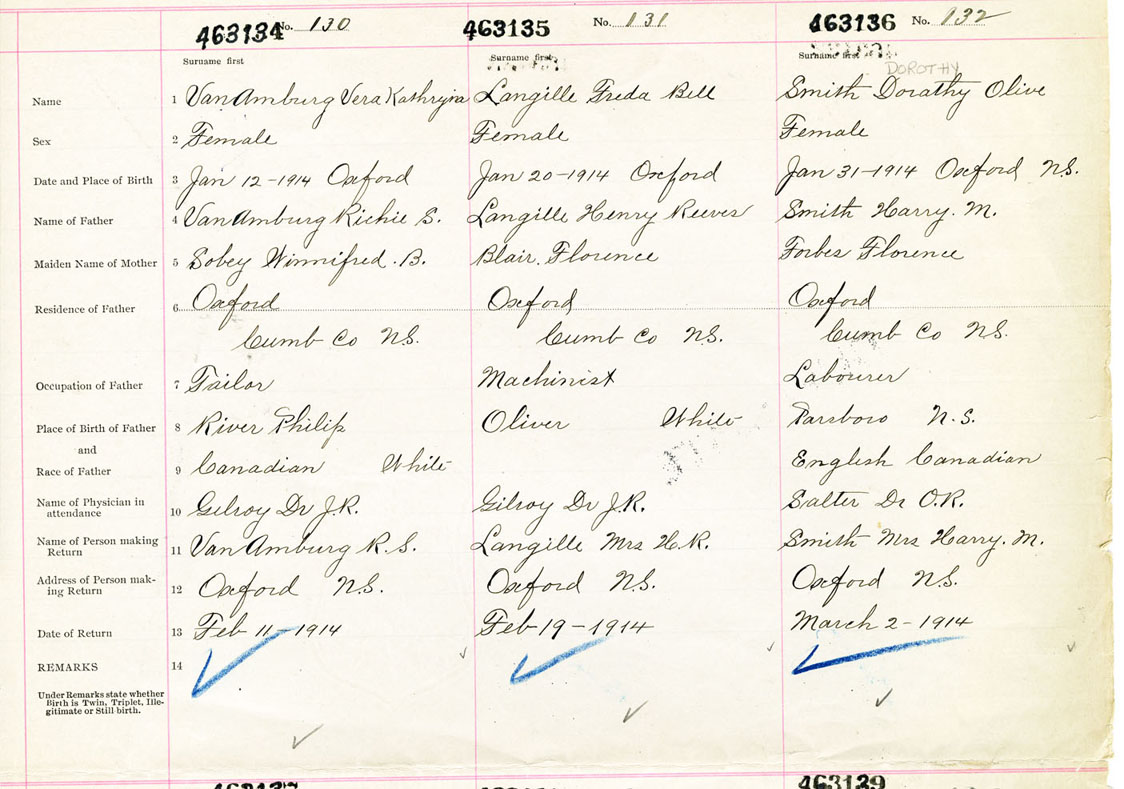 463134 No. 130 463135 No. 131 463136 No. 132
Surname first Surname first Surname first DOROTHY
Name 1 VanAmburg Vera Kathryna Langille Freda Bell Smith Dorathy Olive
Sex 2 Female Female Female
Date and Place of Birth 3 Jan 12-1914 Oxford Jan 20-1914 Oxford Jan 31-1914 Oxford NS.
Name of Father 4 VanAmburg Richie S. Langille Henry Reeves Smith Harry. M.
Maiden Name of Mother 5 Sobey Winnifred. B. Blair. Florence Forbes Florence
Residence of Father 6 Oxford Oxford Oxford
Cumb Co NS. Cumb Co NS. Cumb Co NS.
Occupation of Father 7 Tailor Machinist Labourer
Place of Birth of Father 8 River Philip Oliver White Parsboro N.S.
and
Race of Father 9 Canadian White English Canadian
Name of Physician in
attendance 10 Gilroy Dr J.R. Gilroy Dr J.R. Salter Dr O.R.
Name of Person making
Return 11 VanAmburg R.S. Langille Mrs H.R. Smith Mrs Harry. M.
Address of Person mak-
ing Return 12 Oxford NS. Oxford NS. Oxford NS.
Date of Return 13 Feb 11-1914 Feb 19-1914 March 2-1914
REMARKS 14
Under Remarks state whether
Birth is Twin, Triplet, Ille-
gitimate or Still birth.
463137 463139